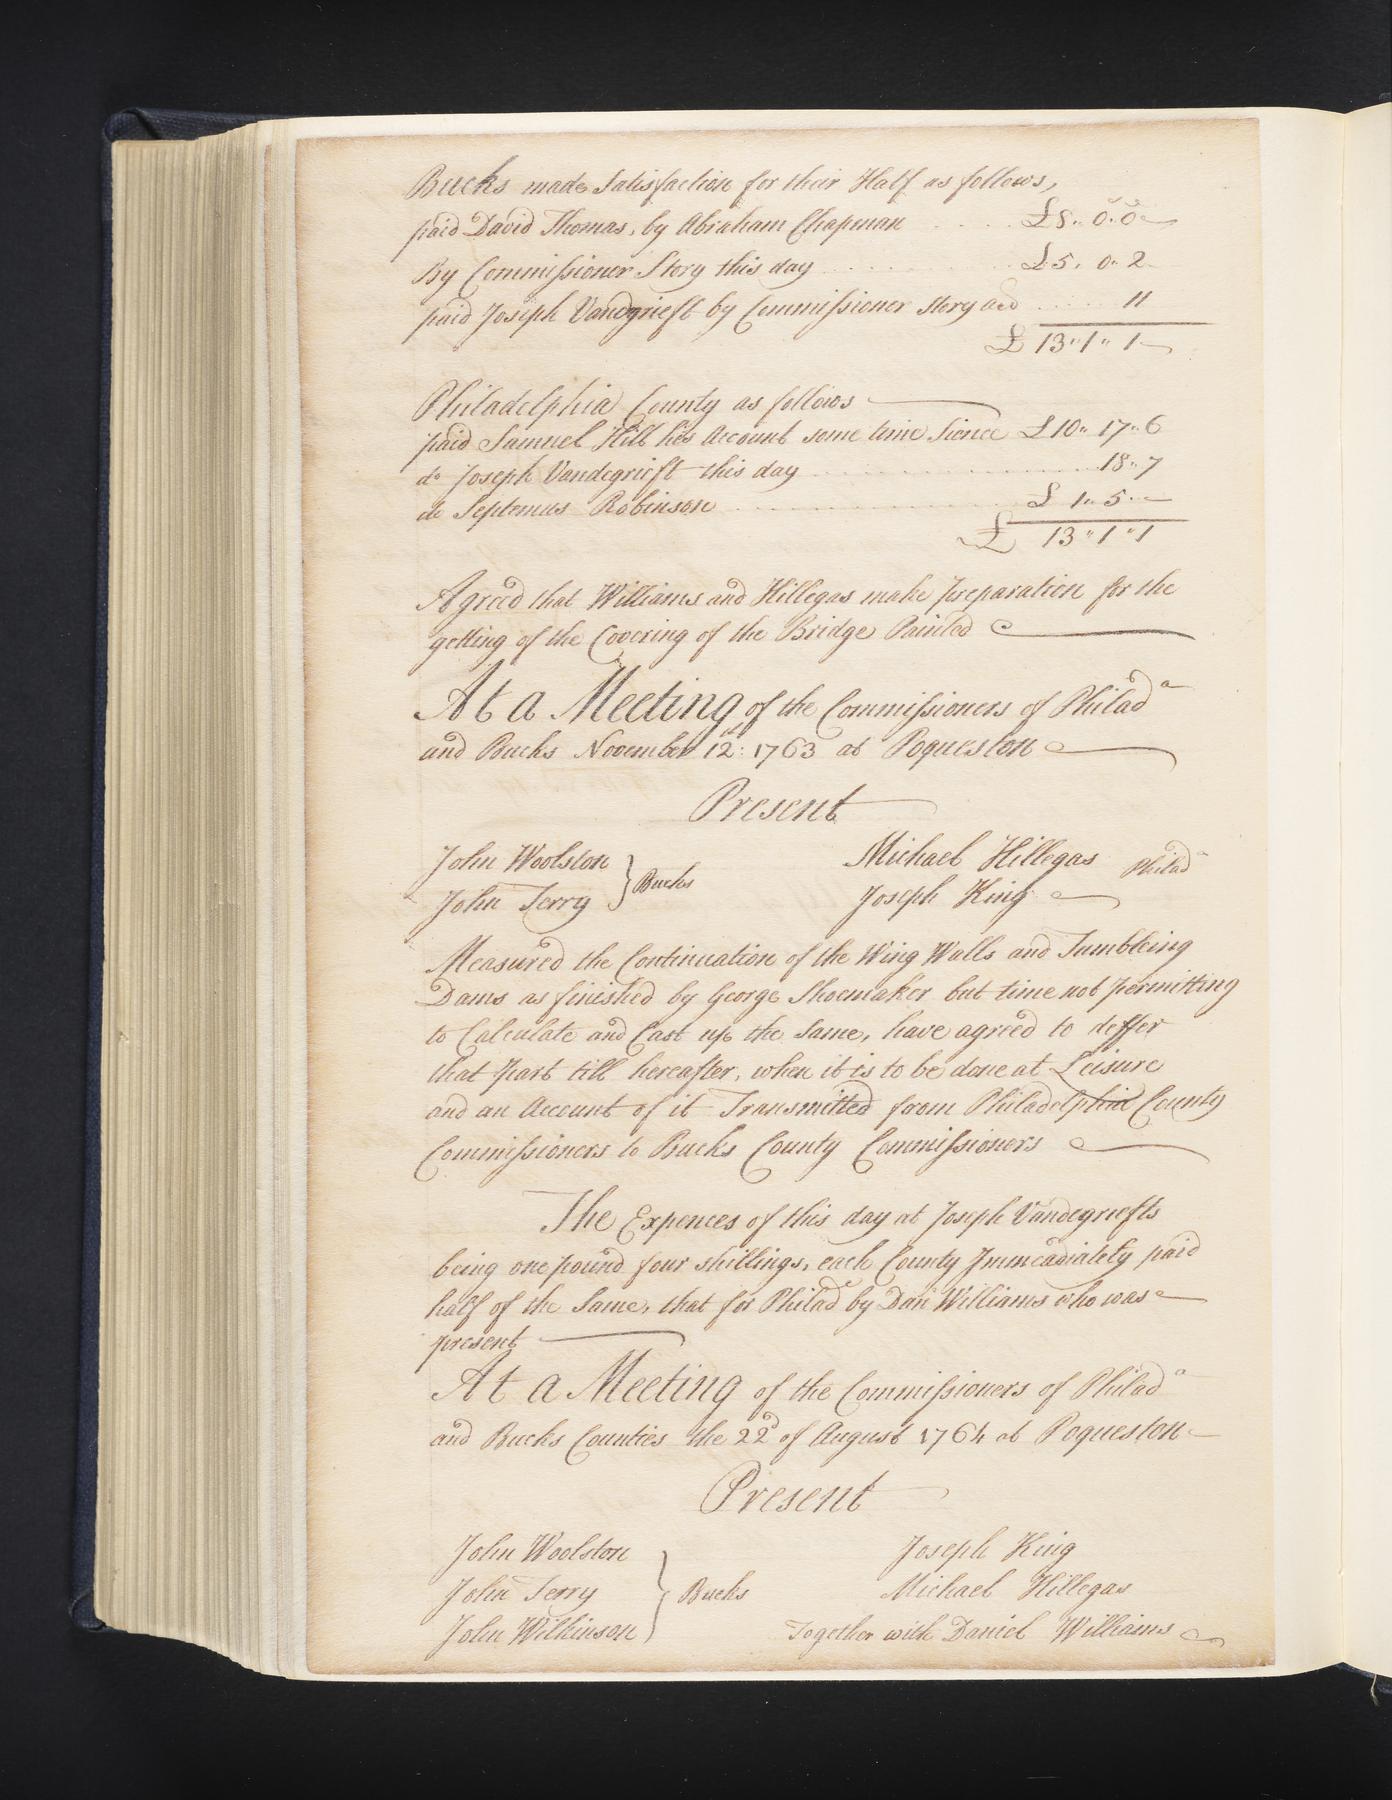 Bucks made Satisfaction for their Half as follows,
paid David Thomas, by Abraham Chapman ..... £8.. 0.. 0
By Commissioner Story this day .......... £5.. 0.. 2
paid Joseph Vandgrieft by Commissioner Story ..... 11
£ 13.. 1.. 1
Philadelphia County as follows
paid Samuel Hill his Account some time Sience £10.. 17.. 6
do Joseph Vandegrieft this day .......... 18.. 7
do Septemus Robinson .......... £ 1.. 5.. —
£ 13.. 1.. 1
Agreed that Williams and Hillegas make preparation for the
getting of the Covering of the Bridge Painted
At a Meeting of the Commissioners of Philada
and Bucks November 12th: 1763 at Poqueston
Present
John Woolston
John Terry } Bucks
Michael Hillegas
Joseph King
Philada
Measured the Continuation of the Wing Walls and Tumbleing
Dams as finished by George Shoemaker but time not permitting
to Calculate and Cast up the Same, have agreed to deffer
that part till hereafter, when it is to be done at Leisure
and an Account of it Transmitted from Philadelphia County
Commissioners to Bucks County Commissioners
The Expences of this day at Joseph Vandegriefts
being one pound four shillings, each County Immeadiately paid
half of the Same, that for Philad by Danl Williams who was
present
At a Meeting of the Commissioners of Philada
and Bucks Counties the 22d of August 1764 at Poqueston
Present
John Woolston
John Terry
John Wilkinson } Bucks
Joseph King
Michael Hillegas
Together with Daniel Williams